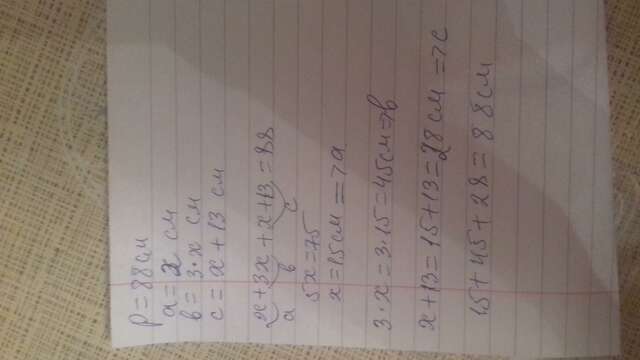 P = 88 см
a = x см
b = 3·x см
c = x + 13 см
x + 3x + x + 13 = 88
a b c
5x = 75
x = 15 см => a
3·x = 3·15 = 45 см => b
x + 13 = 15 + 13 = 28 см => c
15 + 45 + 28 = 88 см